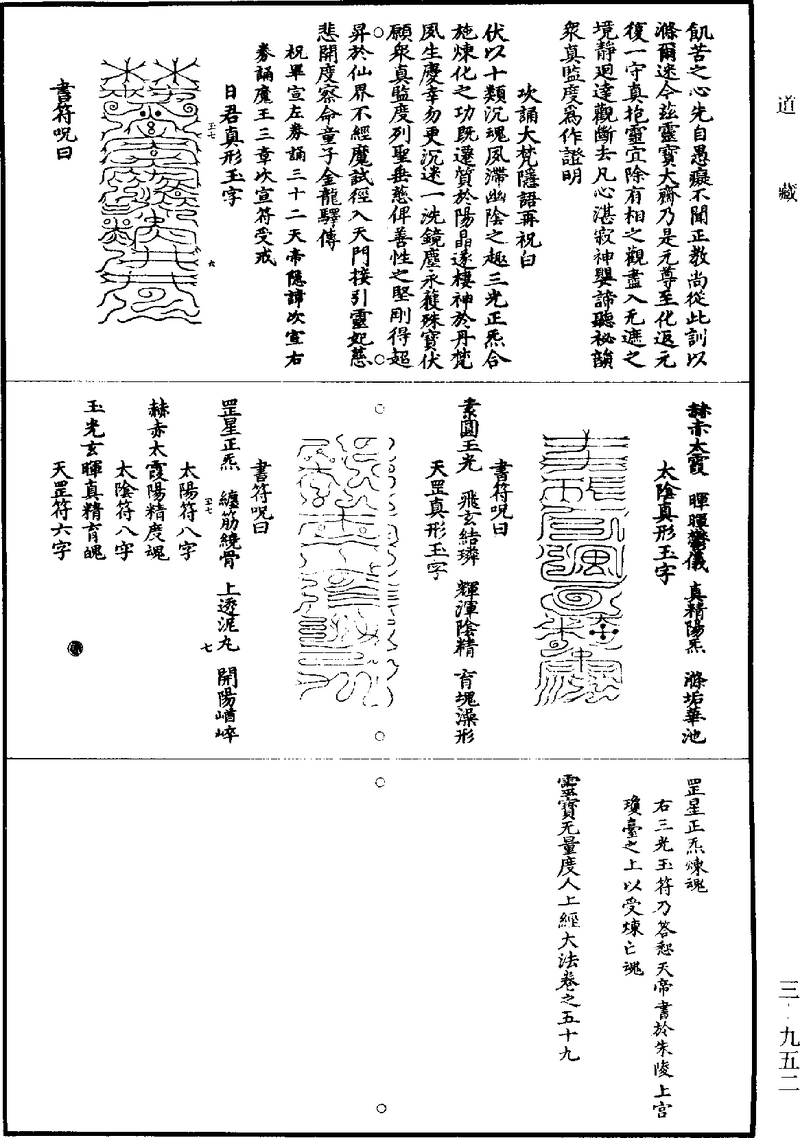 道藏
飢苦之心先自愚癡不聞正教尚從此訓以
滌爾迷今兹靈寶大齋乃是元尊至化返元
復一守真抱靈宜除有相之觀盡入无遮之
境靜迴達觀斷去凡心湛寂神嬰諦聽祕韻
衆真監度爲作證明
次誦大梵隱語再祝白
伏以十類沉魂夙滯幽陰之趣三光正炁合
施煉化之功既還質於陽晶遂棲神於丹梵
風生慶幸勿更沉迷一洗鏡塵永獲殊寶伏
願衆真監度列聖垂慈俾善性之堅剛得超
昇於仙界不經魔試徑入天門接引靈妃慈
悲開度察命童子金龍驛傳
祝畢宣左券誦三十二天帝隱諱次宣右
券誦魔王三章次宣符受戒
日君真形玉字
書符呪曰
赫赤太霞 暉暉儀 真精陽炁 滌垢華池
太陰真形玉字
書符呪曰
素圓玉光 飛玄結璘 輝渾陰精 育塊澡形
天罡真形玉字
書符呪曰
罡星正炁 纏筋繞骨 上透泥丸 開陽崷崪
太陽符八字
赫赤太霞陽精度魂
太陰符八字
玉光玄暉真精育魄
天罡符六字
罡星正炁煉魂
右三光玉符乃答恕天帝書於朱陵上宮
瓊臺之上以受煉亡魂
靈寶无量度人上經大法卷之五十九
三·九五二